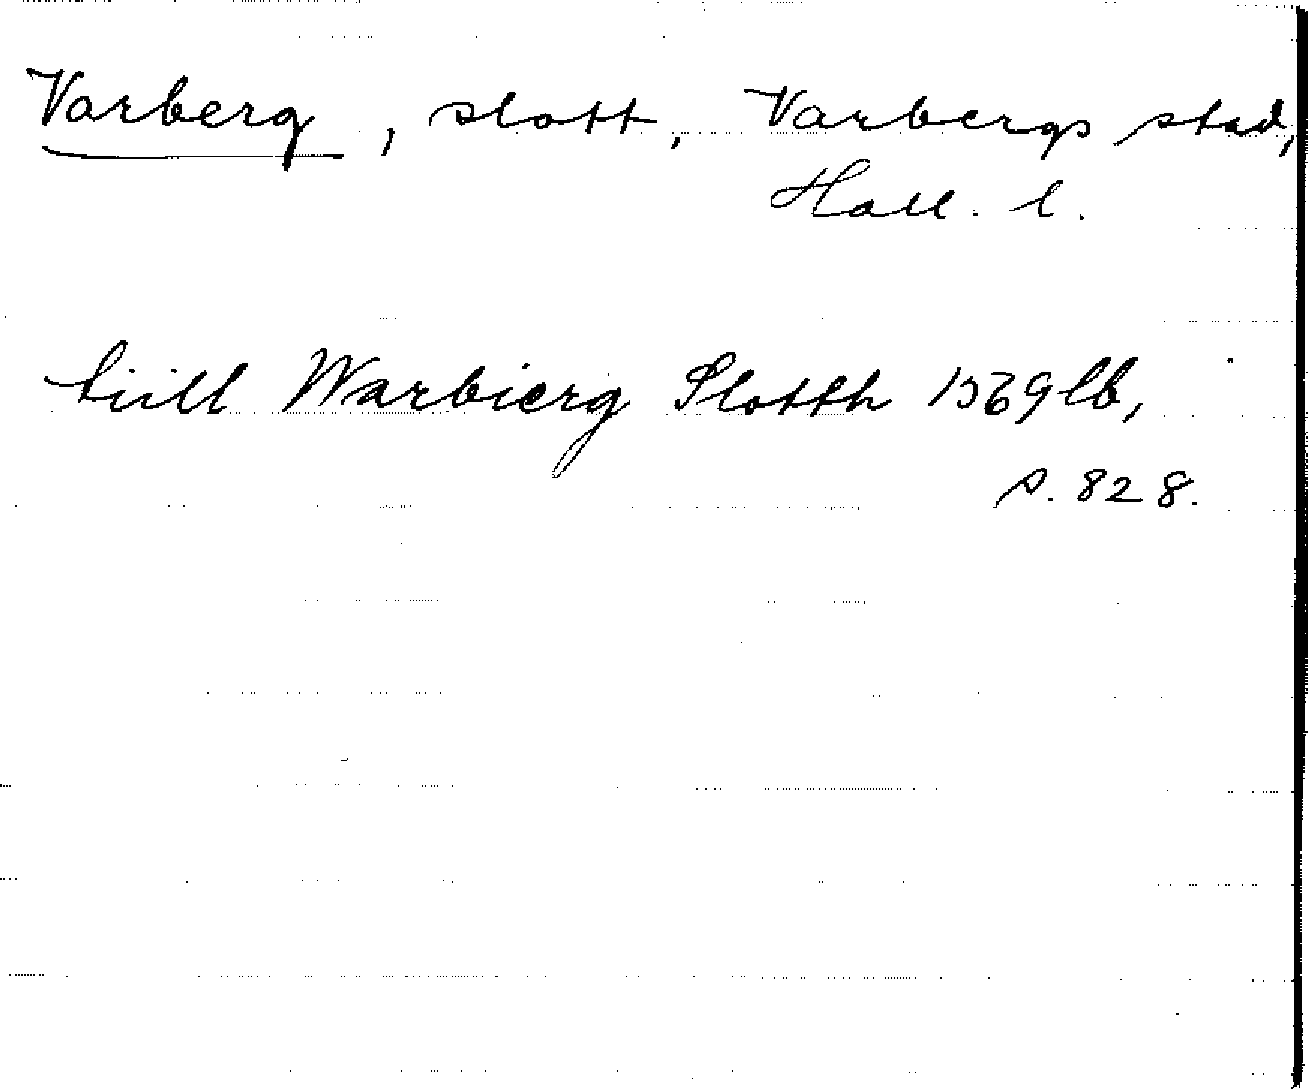 Varberg, slott, Varbergs stad,
Hall. l.
tiill Warbierg Slotth 1569 lb,
s. 828.